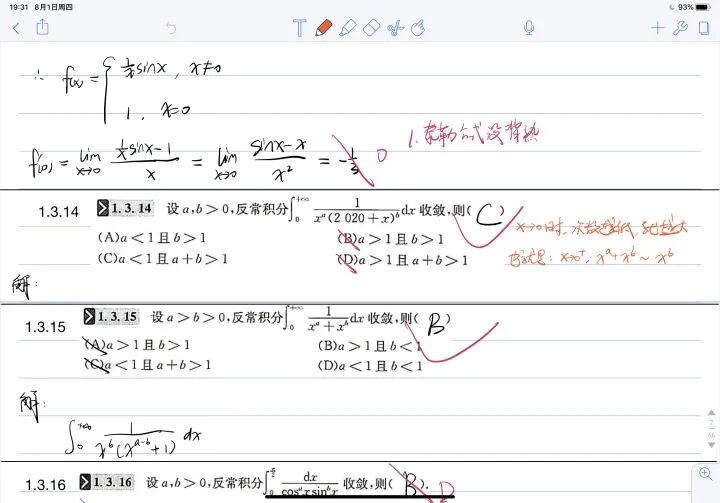 19:31 8月1日周四
93%
∴ f(x) = { 1/x sinx, x≠0
1, x=0
f'(0) = lim x→0 (1/x sinx - 1)/x = lim x→0 (sinx-x)/x² = -1/3 0
1.泰勒公式没背熟
1.3.14 1.3.14 设 a,b>0,反常积分∫₀^{+∞} 1/(x^a(2 020+x)^b) dx 收敛,则( C )
(A)a<1且b>1 (B)a>1且b>1
(C)a<1且a+b>1 (D)a>1且a+b>1
x→0时,次数越低,
也就是: x→0⁺, x^a+x^b ~ x^b
解:
1.3.15 1.3.15 设 a>b>0,反常积分∫₀^{+∞} 1/(x^a+x^b) dx 收敛,则( B )
(A)a>1且b>1 (B)a>1且b<1
(C)a<1且a+b>1 (D)a<1且b<1
解:
∫₀^{+∞} 1/(x^b(x^{a-b}+1)) dx
7
66
1.3.16 1.3.16 设 a,b>0,反常积分∫₀^{π/2} dx/(cos^a x sin^b x) 收敛,则( B ). D